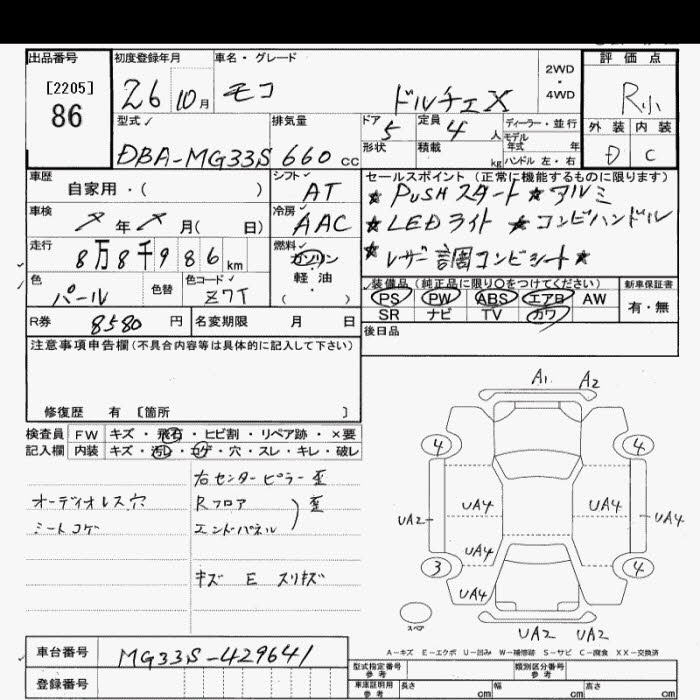 出品番号 初度登録年月 車名・グレード 評価点
[2205]
86
26 10月 モコ ドルチェX 2WD・4WD R小
型式 排気量 ドア 定員 ディーラー・並行 外装 内装
DBA-MG33S 660cc 5 4人 モデル年式 年 D C
形状 積載 kg ハンドル 左・右
車歴 シフト セールスポイント (正常に機能するものに限ります)
自家用・( ) AT ★PUSHスタート★アルミ
車検 年 月( 日) 冷房 AAC ★LEDライト ★コンビハンドル
走行 8万8千986km 燃料 ガソリン ★レザー調コンビシート★
軽油
・( )
色 パール 色替 色コード Z7T
装備品 (純正品に限り○をつけてください) 新車保証書
PS PW ABS エアB AW 有・無
SR ナビ TV カワ
R券 8580円 名変期限 月 日 後日品
注意事項申告欄(不具合内容等は具体的に記入して下さい)
修復歴 有 [箇所 ]
A1 A2
検査員 FW キズ・飛石・ヒビ割・リペア跡・×要
記入欄 内装 キズ・汚れ・コゲ・穴・スレ・キレ・破レ
4 4
右センターピラー歪
オーディオレス穴 Rフロア 歪
シートコゲ エンドパネル
UA4 UA4
UA2 UA4
UA4
3 4
キズ E スリキズ
UA4
スペア
UA2 UA2
A-キズ E-エクボ U-凹み W-補修跡 S-サビ C-腐食 XX-交換済
車台番号 MG33S-429641
型式指定番号 参考 類別区分番号 参考
登録番号
車庫証明用 参考 長さ cm 幅 cm 高さ cm